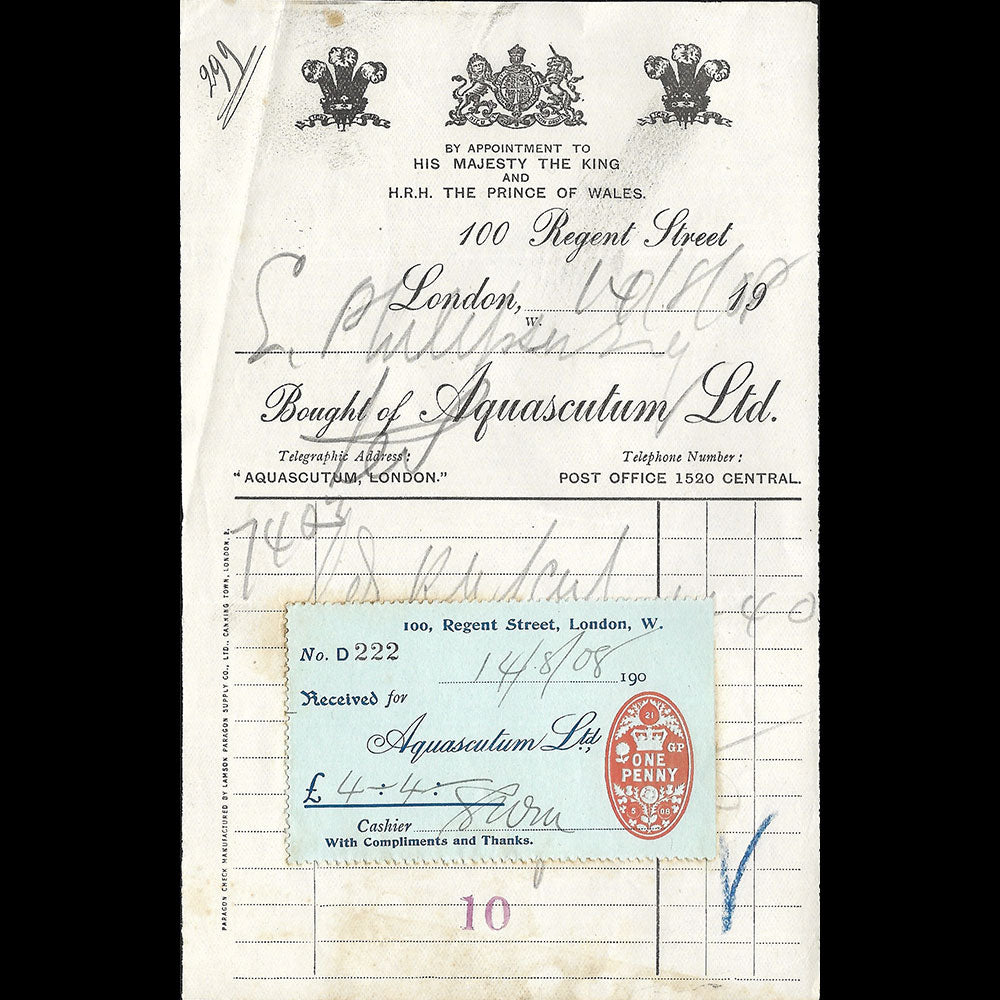 299
BY APPOINTMENT TO
HIS MAJESTY THE KING
AND
H.R.H. THE PRINCE OF WALES.
100 Regent Street
London, W. 14/8/08 19
Bought of Aquascutum Ltd.
Telegraphic Address: Telephone Number:
"AQUASCUTUM, LONDON." POST OFFICE 1520 CENTRAL.
PARAGON CHECK MANUFACTURED BY LAMSON PARAGON SUPPLY CO., LTD., CANNING TOWN, LONDON, E.
740
40
100, Regent Street, London, W.
No. D 222
14/8/08 190
Received for
Aquascutum Ltd,
£ 4 : 4 : -
Cashier
With Compliments and Thanks.
21
GP
ONE
PENNY
5 08
10